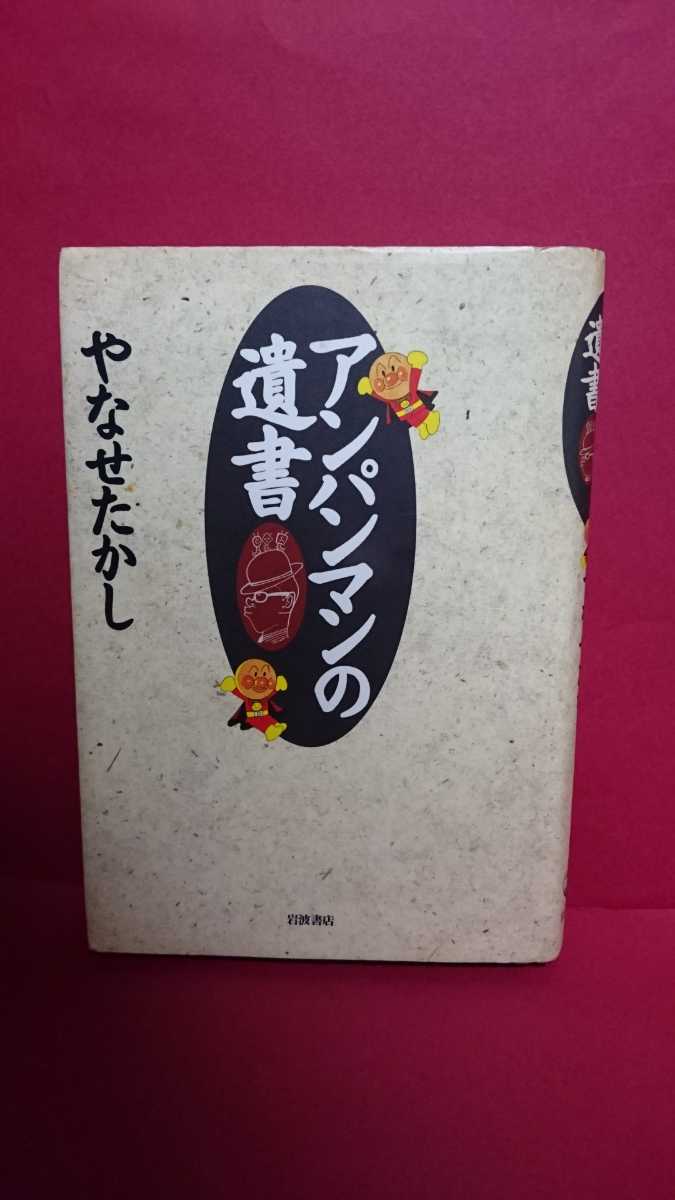 アンパンマンの
遺書
やなせたかし
岩波書店
遺書